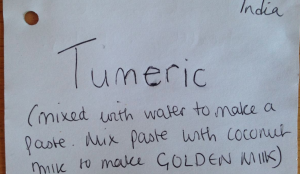 India
Tumeric
(mixed with water to make a
paste. Mix paste with coconut
milk to make GOLDEN MILK)